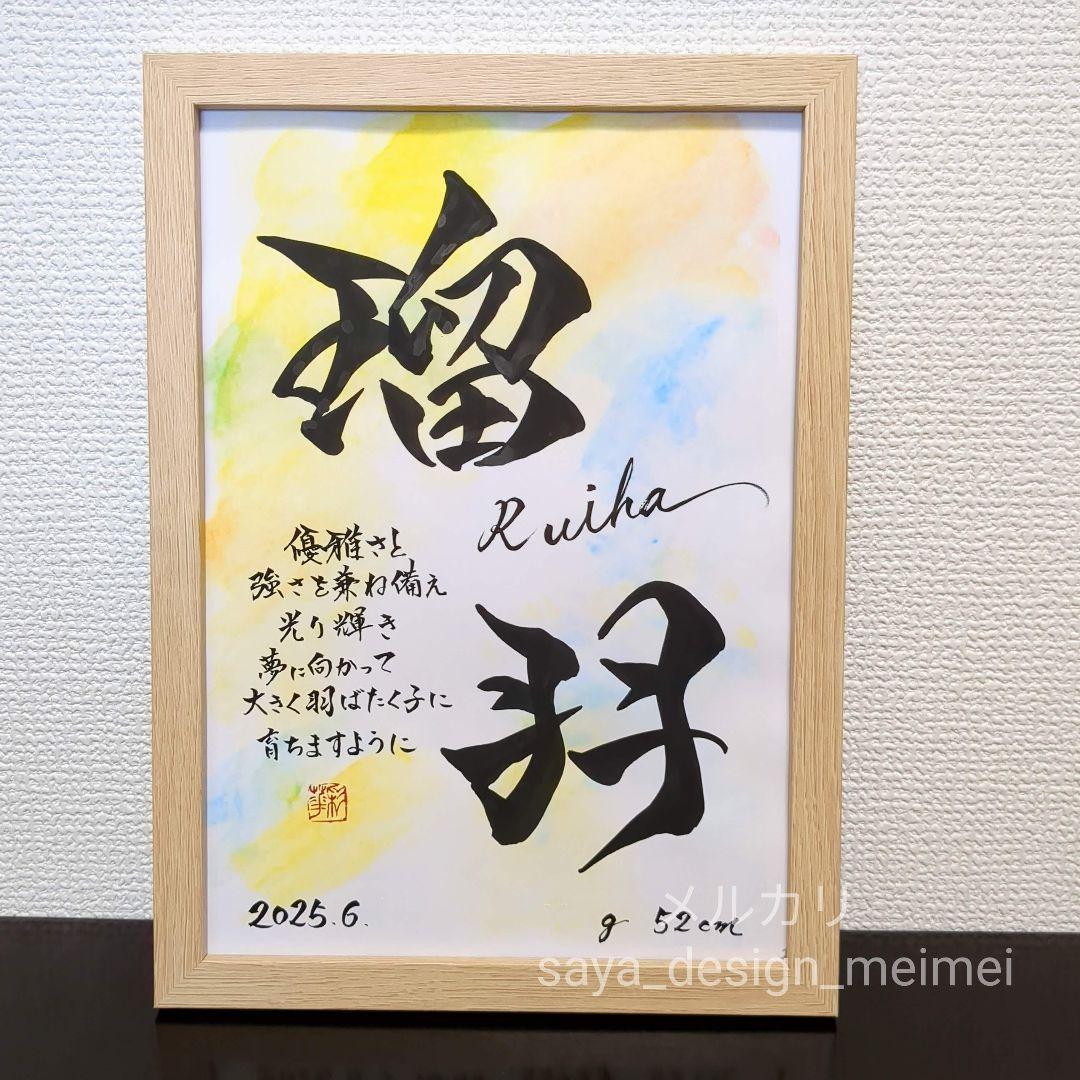 瑠羽
Ruiha
優雅さと
強さを兼ね備え
光り輝き
夢に向かって
大きく羽ばたく子に
育ちますように
2025.6.
g 52cm
メルカリ
saya_design_meimei